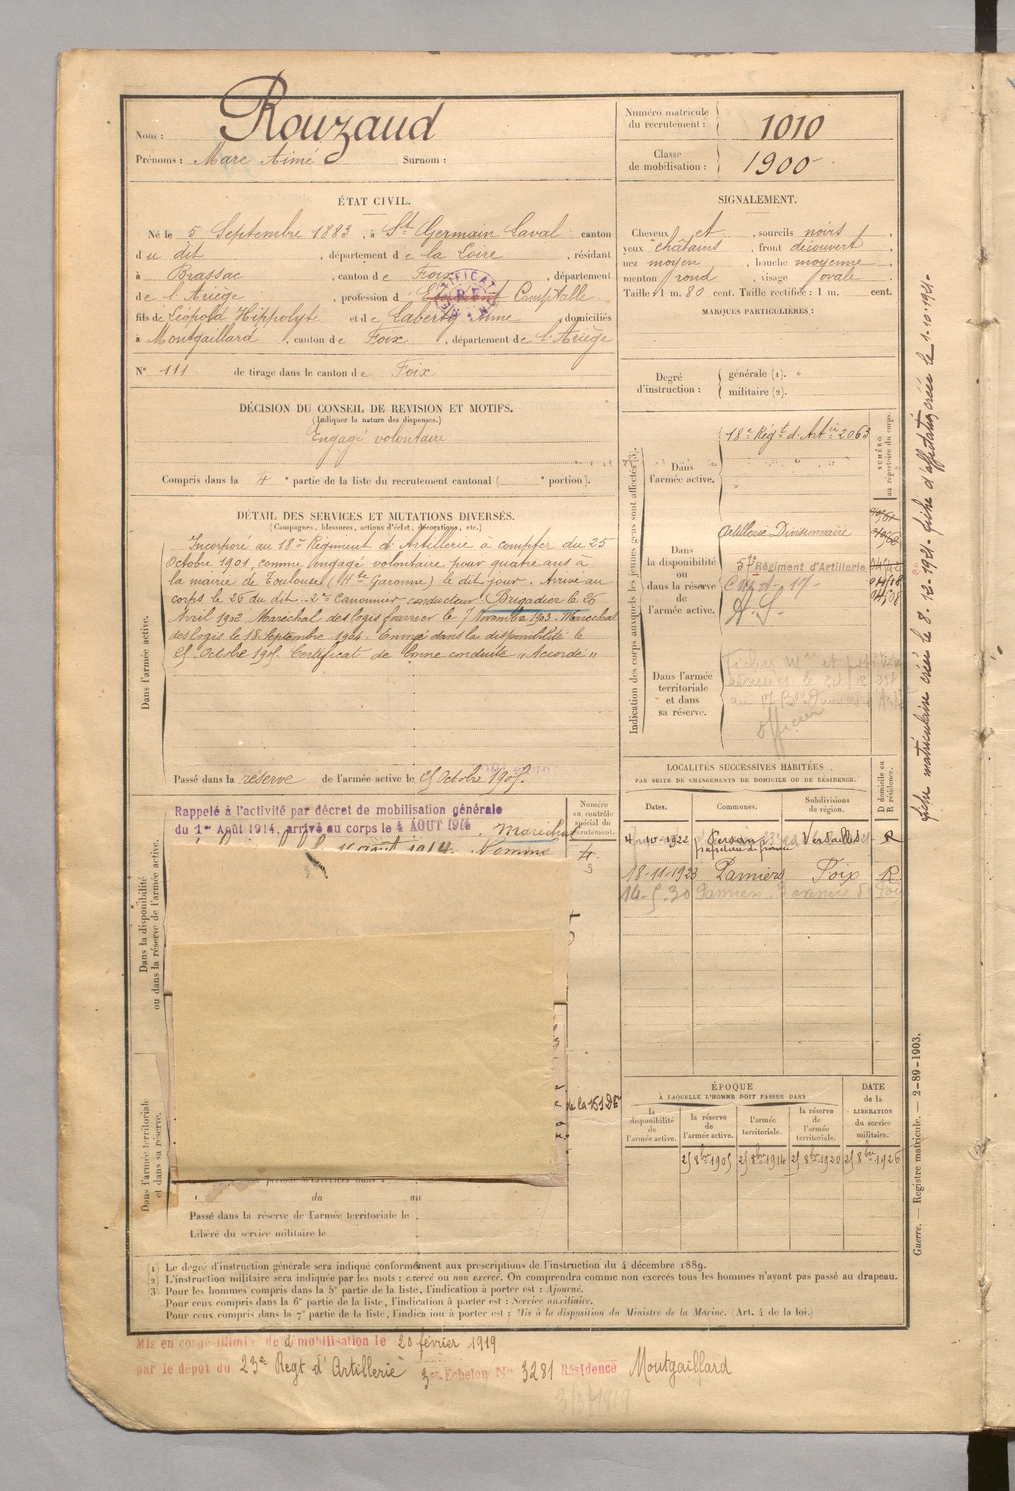 Nom : Rouzaud
Prénoms : Marc Aimé Surnom :
Numéro matricule du recrutement : 1010
Classe de mobilisation : 1900
ÉTAT CIVIL.
Né le 5 Septembre 1883, à St Germain Laval canton
du dit, département de la Loire, résidant
à Brassac, canton de Foix, département
de l'Ariège, profession d Etudiant Comptable
fils de Léopold Hippolyte et de Laberty Anne domiciliés
à Montgaillard, canton de Foix, département de l'Ariège
N° 111 de tirage dans le canton de Foix
SIGNALEMENT.
Cheveux et, sourcils noirs,
yeux châtains, front découvert
nez moyen, bouche moyenne
menton rond, visage ovale
Taille 1 m. 80 cent. Taille rectifiée : 1 m. cent.
MARQUES PARTICULIÈRES :
Degré d'instruction : générale (1). "
militaire (2).
DÉCISION DU CONSEIL DE REVISION ET MOTIFS.
(Indiquer la nature des dispenses.)
Engagé volontaire
Compris dans la 4e partie de la liste du recrutement cantonal ( e portion).
DÉTAIL DES SERVICES ET MUTATIONS DIVERSES.
(Campagnes, blessures, actions d'éclat, décorations, etc.)
Dans l'armée active.
Incorporé au 18e Régiment d'Artillerie à compter du 25
Octobre 1901, comme engagé volontaire pour quatre ans à
la mairie de Toulouse (Hte Garonne) le dit jour. Arrivé au
corps le 26 du dit. 2e Canonnier conducteur. Brigadier le 26
Avril 1902 Maréchal des logis fourrier le 7 Novembre 1903. Maréchal
des logis le 18 Septembre 1904. Envoyé dans la disponibilité le
25 Octobre 1905. Certificat de bonne conduite "Accordé"
Passé dans la réserve de l'armée active le 25 Octobre 1905.
Indication des corps auxquels les jeunes gens sont affectés (3).
NUMÉRO au répertoire du corps.
Dans l'armée active.
18e Régt d'Artie 2063
Dans la disponibilité ou dans la réserve de l'armée active.
Artillerie Divisionnaire
57e Régiment d'Artillerie
Dans l'armée territoriale et dans sa réserve.
officier
LOCALITÉS SUCCESSIVES HABITÉES
PAR SUITE DE CHANGEMENTS DE DOMICILE OU DE RÉSIDENCE.
D domicile ou R résidence.
Dates. Communes. Subdivisions de région.
4-10-1922 Versailles R
18-11-1923 Pamiers Foix R
14-5-30 Pamiers
Dans la disponibilité ou dans la réserve de l'armée active.
Rappelé à l'activité par décret de mobilisation générale
du 1er Août 1914, arrivé au corps le 4 AOUT 1914. Maréchal
août 1914. Nommé
Numéro au contrôle spécial du recrutement.
4
3
de la 15e DE
Dans l'armée territoriale et dans sa réserve.
du au
Passé dans la réserve de l'armée territoriale le
Libéré du service militaire le
ÉPOQUE
À LAQUELLE L'HOMME DOIT PASSER DANS
la disponibilité de l'armée active. la réserve de l'armée active. l'armée territoriale. la réserve de l'armée territoriale.
DATE de la LIBÉRATION du service militaire.
25 8bre 1905 25 8bre 1914 25 8bre 1920 25 8bre 1926
(1) Le degré d'instruction générale sera indiqué conformément aux prescriptions de l'instruction du 4 décembre 1889.
(2) L'instruction militaire sera indiquée par les mots : exercé ou non exercé. On comprendra comme non exercés tous les hommes n'ayant pas passé au drapeau.
(3) Pour les hommes compris dans la 5e partie de la liste, l'indication à porter est : Ajourné.
Pour ceux compris dans la 6e partie de la liste, l'indication à porter est : Service auxiliaire.
Pour ceux compris dans la 7e partie de la liste, l'indication à porter est : Mis à la disposition du Ministre de la Marine. (Art. 4 de la loi.)
Mis en congé illimité de démobilisation le 20 février 1919
par le dépôt du 23e Regt d'Artillerie 3e Echelon No 3281 Résidence Montgaillard
3/3/1919
fiche matriculaire créée le 8.12.1921 - fiche d'affectation créée le 1.10.1921.
Guerre. — Registre matricule. — 2-89-1903.